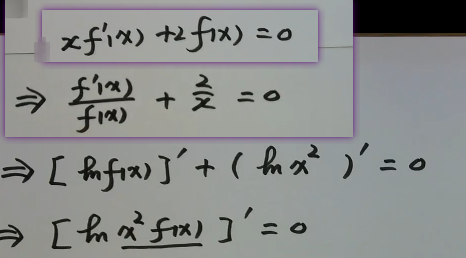 xf'(x) + 2f(x) = 0
⇒ f'(x)/f(x) + 2/x = 0
⇒ [ln f(x)]' + (ln x²)' = 0
⇒ [ln x² f(x)]' = 0